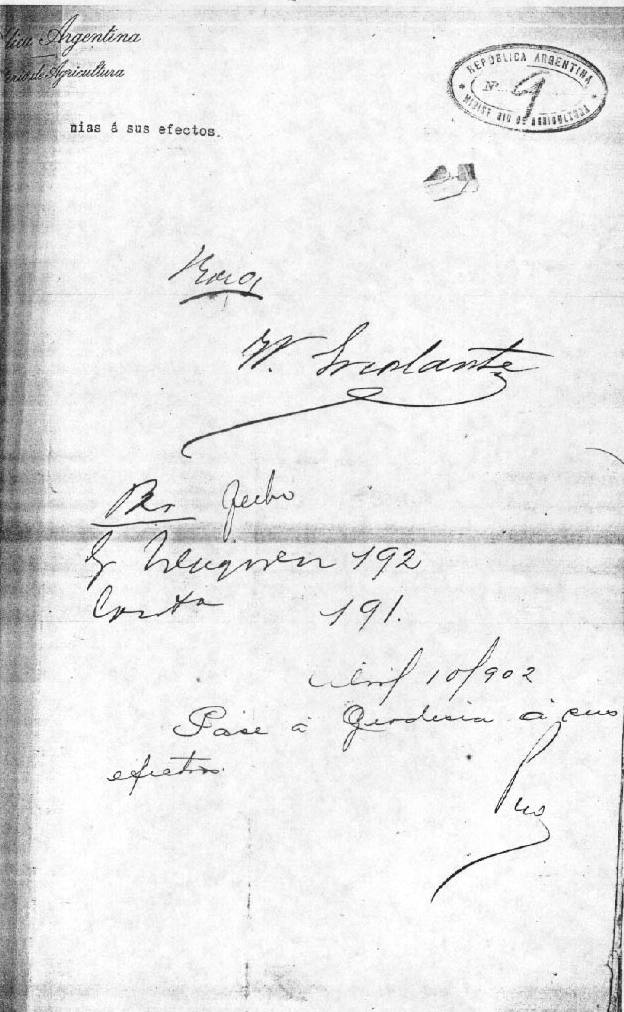 lica Argentina
erio de Agricultura
REPÚBLICA ARGENTINA
Nº 9
MINISTERIO DE AGRICULTURA
nias á sus efectos.
Roca
W. Escalante
fecho
Neuquen 192
Costa 191.
Abril 10/902
Pase á Geodesia á sus
efectos